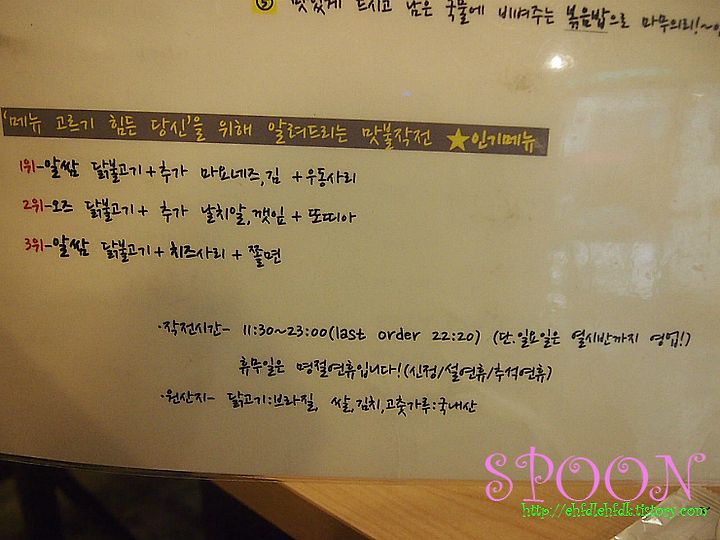 ⑤ 맛있게 드시고 남은 국물에 비벼주는 볶음밥으로 마무의리!~
'메뉴 고르기 힘든 당신'을 위해 알려드리는 맛불작전 ★인기메뉴
1위-알쌈 닭불고기+추가 마요네즈,김 +우동사리
2위-오즈 닭불고기+ 추가 날치알,깻잎 + 또띠아
3위-알쌈 닭불고기+치즈사리 + 쫄면
·작전시간- 11:30~23:00(last order 22:20) (단.일요일은 열시반까지 영업!)
휴무일은 명절연휴입니다!(신정/설연휴/추석연휴)
·원산지- 닭고기:브라질, 쌀,김치,고춧가루:국내산
SPOON
http://ehfdlehfdk.tistory.com